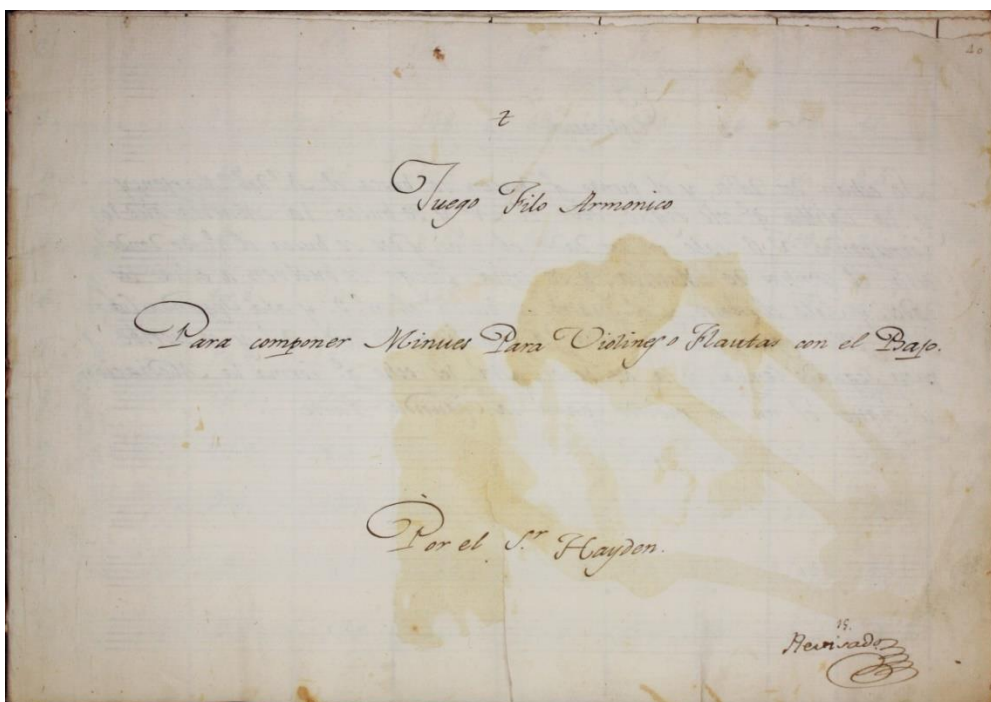 40
t
Juego Filo Armonico
Para componer Minues Para Violines o Flautas con el Bajo.
Por el S.r Haydon.
15.
Revisado